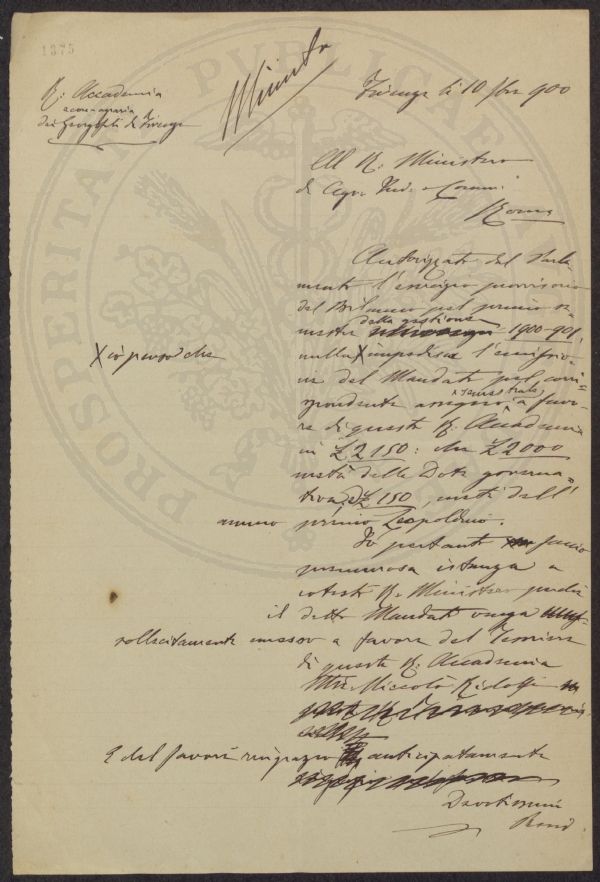 1375
R. Accademia
economagraria
dei Georgofili di Firenze
Minuta
Firenze li 10 900
Al R. Ministero
di Agr. Ind. e Comm.
Roma
Autorizzato dal Parla
mento l'esercizio provvisorio
del Bilancio pel primo se
mestre della gestione 1900-901,
nulla X impedisce l'emissio-
X io penso che
ne del Mandato pel corri-
spondente assegno semestrale a favo-
re di questa R. Accademia
in £ 2150: £ 2000
metà della Dote governa-
tiva, e £ 150, metà dell'
annuo premio Leopoldino.
Io pertanto faccio
premurosa istanza a
cotesto R. Ministero perchè
il detto Mandato venga
sollecitamente emesso a favore del
di questa R. Accademia
Niccolò Ridolfi
E del favore ringrazio anticipatamente
Devotissimo